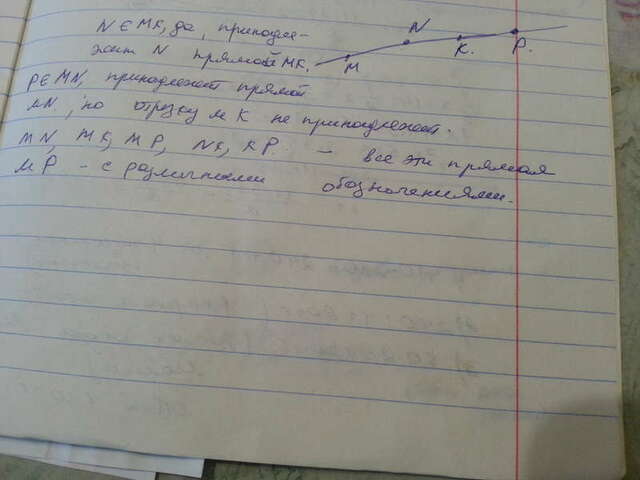 N ∈ MK, да, принадле-
жит N прямой MK.
M N K. P.
P ∈ MN, принадлежит прямой
MN, но отрезку MK не принадлежит.
MN, MK, MP, NK, KP. – все эти прямая
MP – с различными обозначениями.